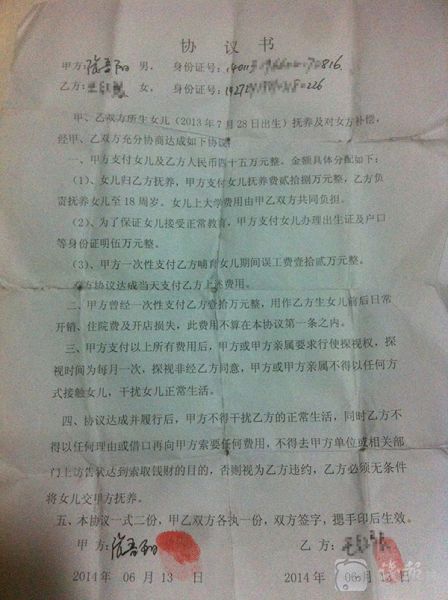 协 议 书
甲方: 男, 身份证号: 816
乙方: 女, 身份证号: 226
甲、乙双方所生女儿(2013年7月28日出生)抚养及对女方补偿,
经甲、乙双方充分协商达成如下协议:
一、甲方支付女儿及乙方人民币四十五万元整。金额具体分配如下:
(1)、女儿归乙方抚养,甲方支付女儿抚养费贰拾捌万元整,乙方负
责抚养女儿至18周岁。女儿上大学费用由甲乙双方共同负担。
(2)、为了保证女儿接受正常教育,甲方支付女儿办理出生证及户口
等身份证明伍万元整。
(3)、甲方一次性支付乙方哺育女儿期间误工费壹拾贰万元整。
方协议达成当天支付乙方上述费用。
二、甲方曾经一次性支付乙方壹拾万元整,用作乙方生女儿前后日常
开销、住院费及开店损失,此费用不算在本协议第一条之内。
三、甲方支付以上所有费用后,甲方或甲方亲属要求行使探视权,探
视时间为每月一次,探视非经乙方同意,甲方或甲方亲属不得以任何方
式接触女儿,干扰女儿正常生活。
四、协议达成并履行后,甲方不得干扰乙方的正常生活,同时乙方不
得以任何理由或借口再向甲方索要任何费用,不得去甲方单位或相关部
门上访告状达到索取钱财的目的,否则视为乙方违约,乙方必须无条件
将女儿交甲方抚养。
五、本协议一式二份,甲乙双方各执一份,双方签字,摁手印后生效。
甲 方: 乙 方:
2014年 06月 13 日 2014年 06月 13 日